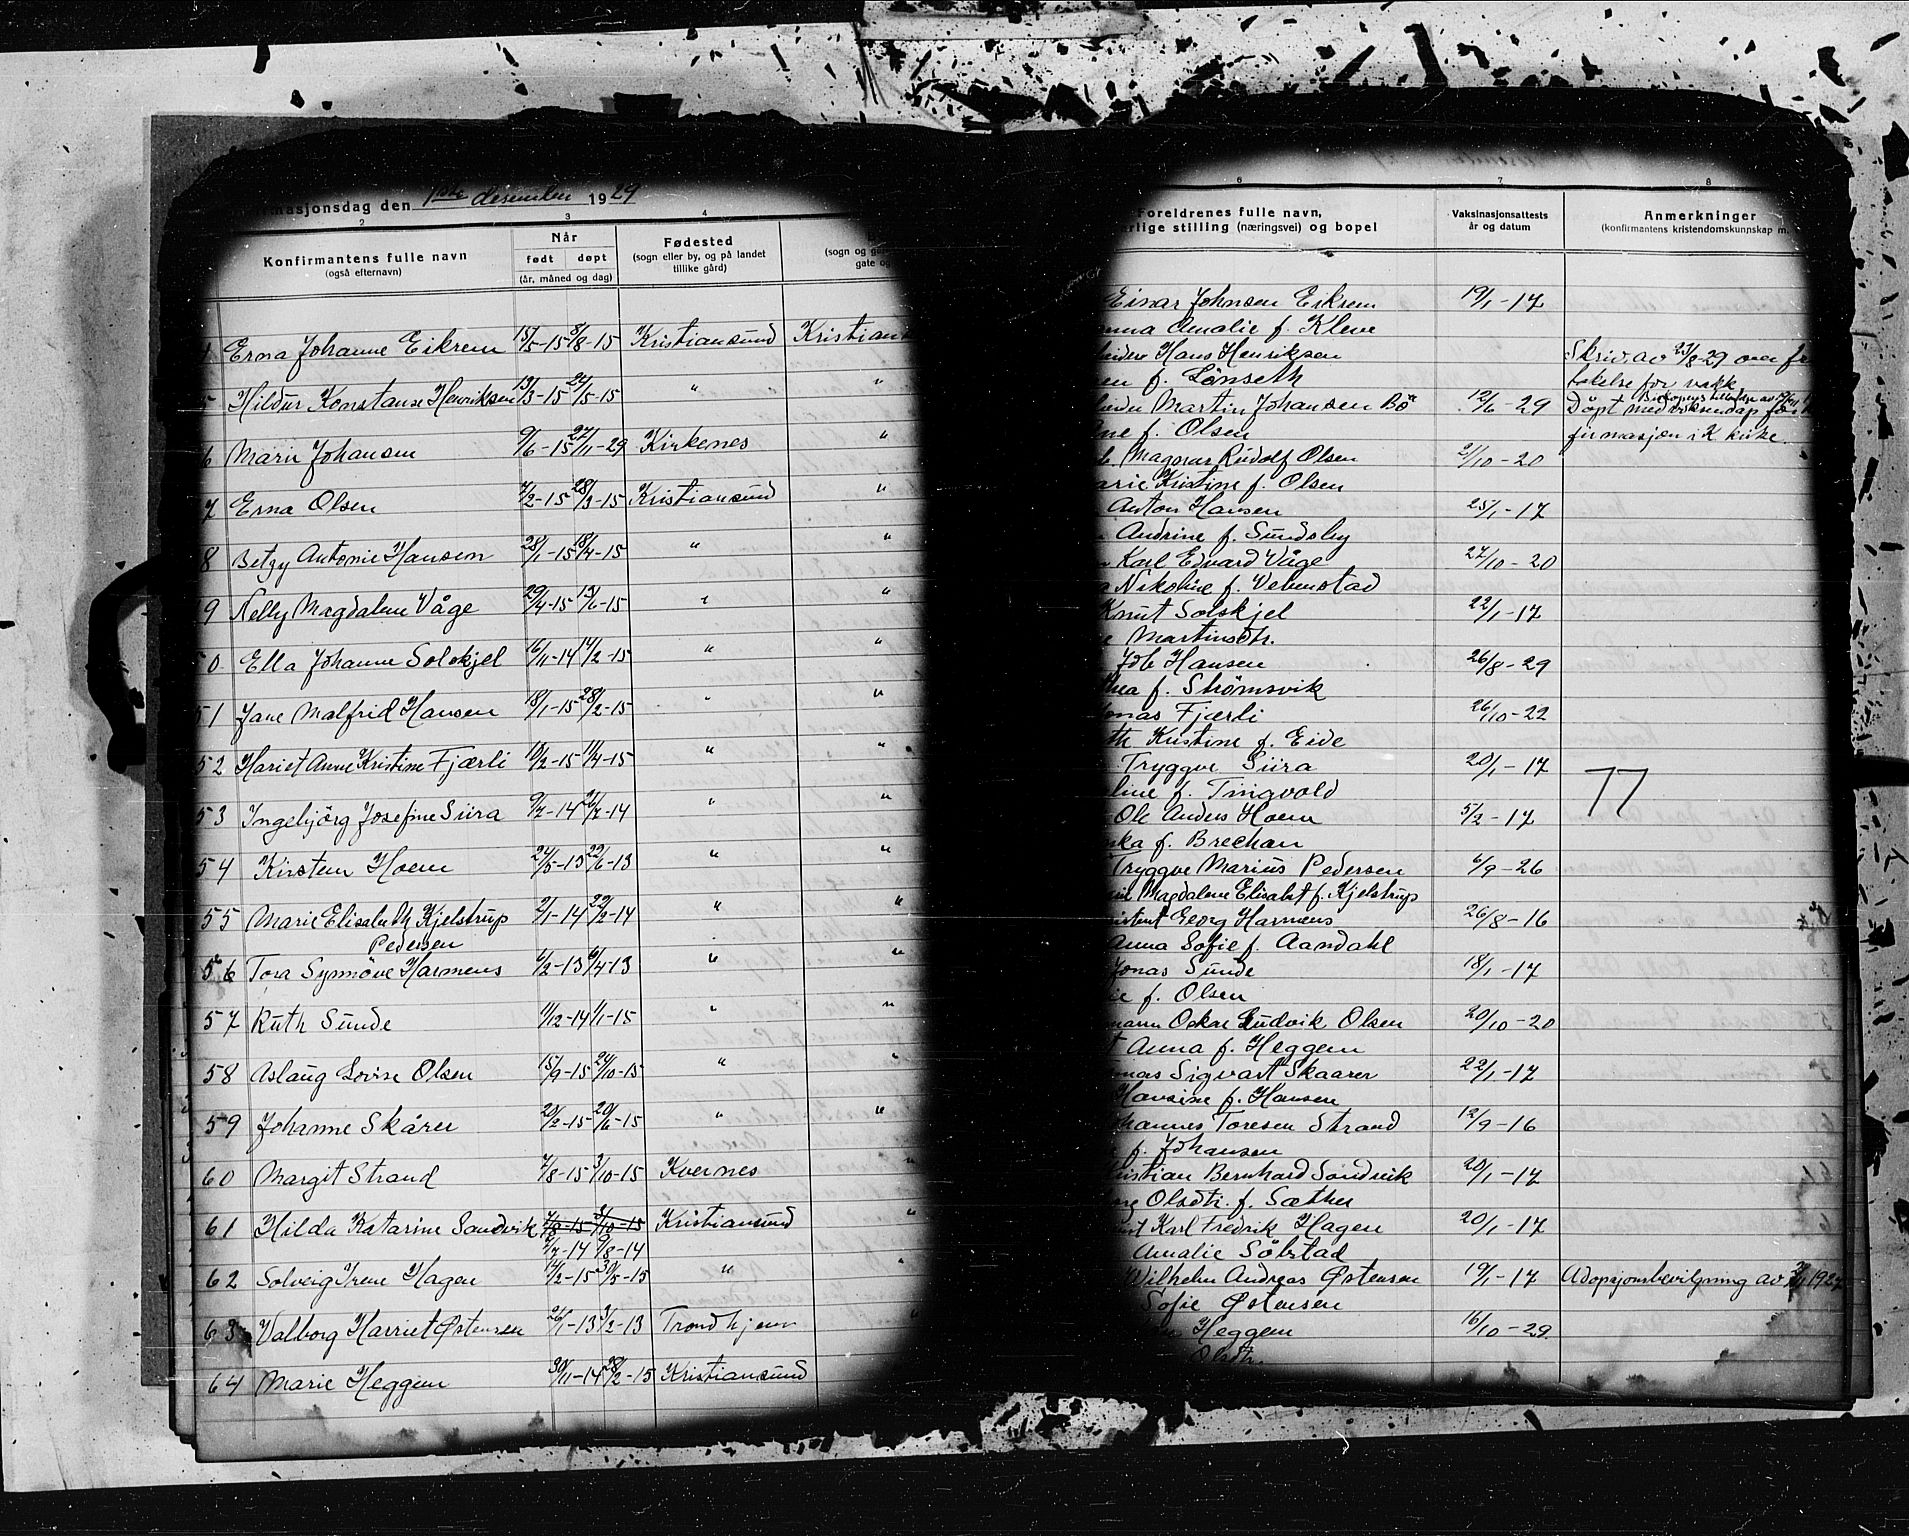 masjonsdag den 1ste desember 1929
2 3 4
Konfirmantens fulle navn
(også efternavn)
Når
født døpt
(år, måned og dag)
Fødested
(sogn eller by, og på landet
tillike gård)
(sogn og
gate og
Erna Johanne Eikrem 15/5-15 8/8-15 Kristiansund Kristian
Hildur Konstanse Henriksen 13/3-15 24/5-15 " "
6 Marie Johansen 9/6-15 27/11-29 Kirkenes "
7 Erna Olsen 7/2-15 28/3-15 Kristiansund "
8 Betzy Antonie Hansen 28/1-15 18/4-15 " "
9 Nelly Magdalene Våge 29/4-15 13/6-15 " "
50 Ella Johanne Solskjel 16/11-14 14/2-15 " "
51 Jane Malfrid Hansen 18/1-15 28/2-15 " "
52 Hariet Anne Kristine Fjærli 10/2-15 11/4-15 " "
53 Ingebjörg Josefine Siira 9/7-14 26/7-14 " "
54 Kirsten Hoem 24/5-13 22/6-13 " "
55 Marie Elisabeth Kjelstrup 2/1-14 22/2-14 " "
Pedersen
56 Tora Synnöve Harmens 6/2-13 6/4-13 " "
57 Ruth Sunde 11/12-14 1/1-15 " "
58 Aslaug Lovise Olsen 15/9-15 24/10-15 " "
59 Johanne Skårer 20/2-15 20/6-15 " "
60 Margit Strand 7/8-15 3/10-15 Kvernes "
61 Hilda Katarine Sandvik 7/8-15 3/10-15 Kristiansund "
7/7-14 9/8-14
62 Solveig Irene Hagen 14/2-15 30/5-15 " "
63 Valborg Harriet Østensen 26/1-13 3/2-13 Trondhjem "
64 Marie Heggem 30/11-14 28/2-15 Kristiansund
6 7 8
Foreldrenes fulle navn,
rlige stilling (næringsvei) og bopel
Vaksinasjonsattests
år og datum
Anmerkninger
(konfirmantens kristendomskunnskap m.
Einar Johnsen Eikrem 19/1-17
Amalie f. Kleve
Hans Henriksen Skriv. av 23/8-29 om fri
f. Lönseth takelse for vakk.
Martin Johansen Bö 12/6-29 Döpt med
f. Olsen firmasjon i K kirke.
Magnar Rudolf Olsen 21/10-20
arie Kristine f. Olsen
Anton Hansen 25/1-17
Andrine f. Sundsby
Karl Edvard Våge 27/10-20
Nikoline f. Vebenstad
Knut Solskjel 22/1-17
Martinsdtr.
Job Hansen 26/8-29
thea f. Strömsvik
onas Fjærli 26/10-22
th Kristine f. Eide
Tryggve Siira 20/1-17
line f. Tingvold 77
Ole Anders Hoem 5/2-17
ka f. Brechan
Tryggve Marius Pedersen 6/9-26
Magdalene Elisabet f. Kjelstrup
istent Georg Harmens 26/8-16
Anna Sofie f. Aandahl
Jonas Sunde 18/1-17
ie f. Olsen
mann Oskar Ludvik Olsen 20/10-20
Anna f. Heggem
onas Sigvart Skaarer 22/1-17
Hansine f. Hansen
hannes Toresen Strand 12/9-16
f. Johansen
ristian Bernhard Sandvik 20/1-17
Olsdtr. f. Sæther
Karl Fredrik Hagen 20/1-17
Amalie Sölstad
Vilhelm Andreas Østensen 19/1-17 Adopsjonsbevilgning av
Sofie Østensen
Heggem 16/10-29
Olsdtr.